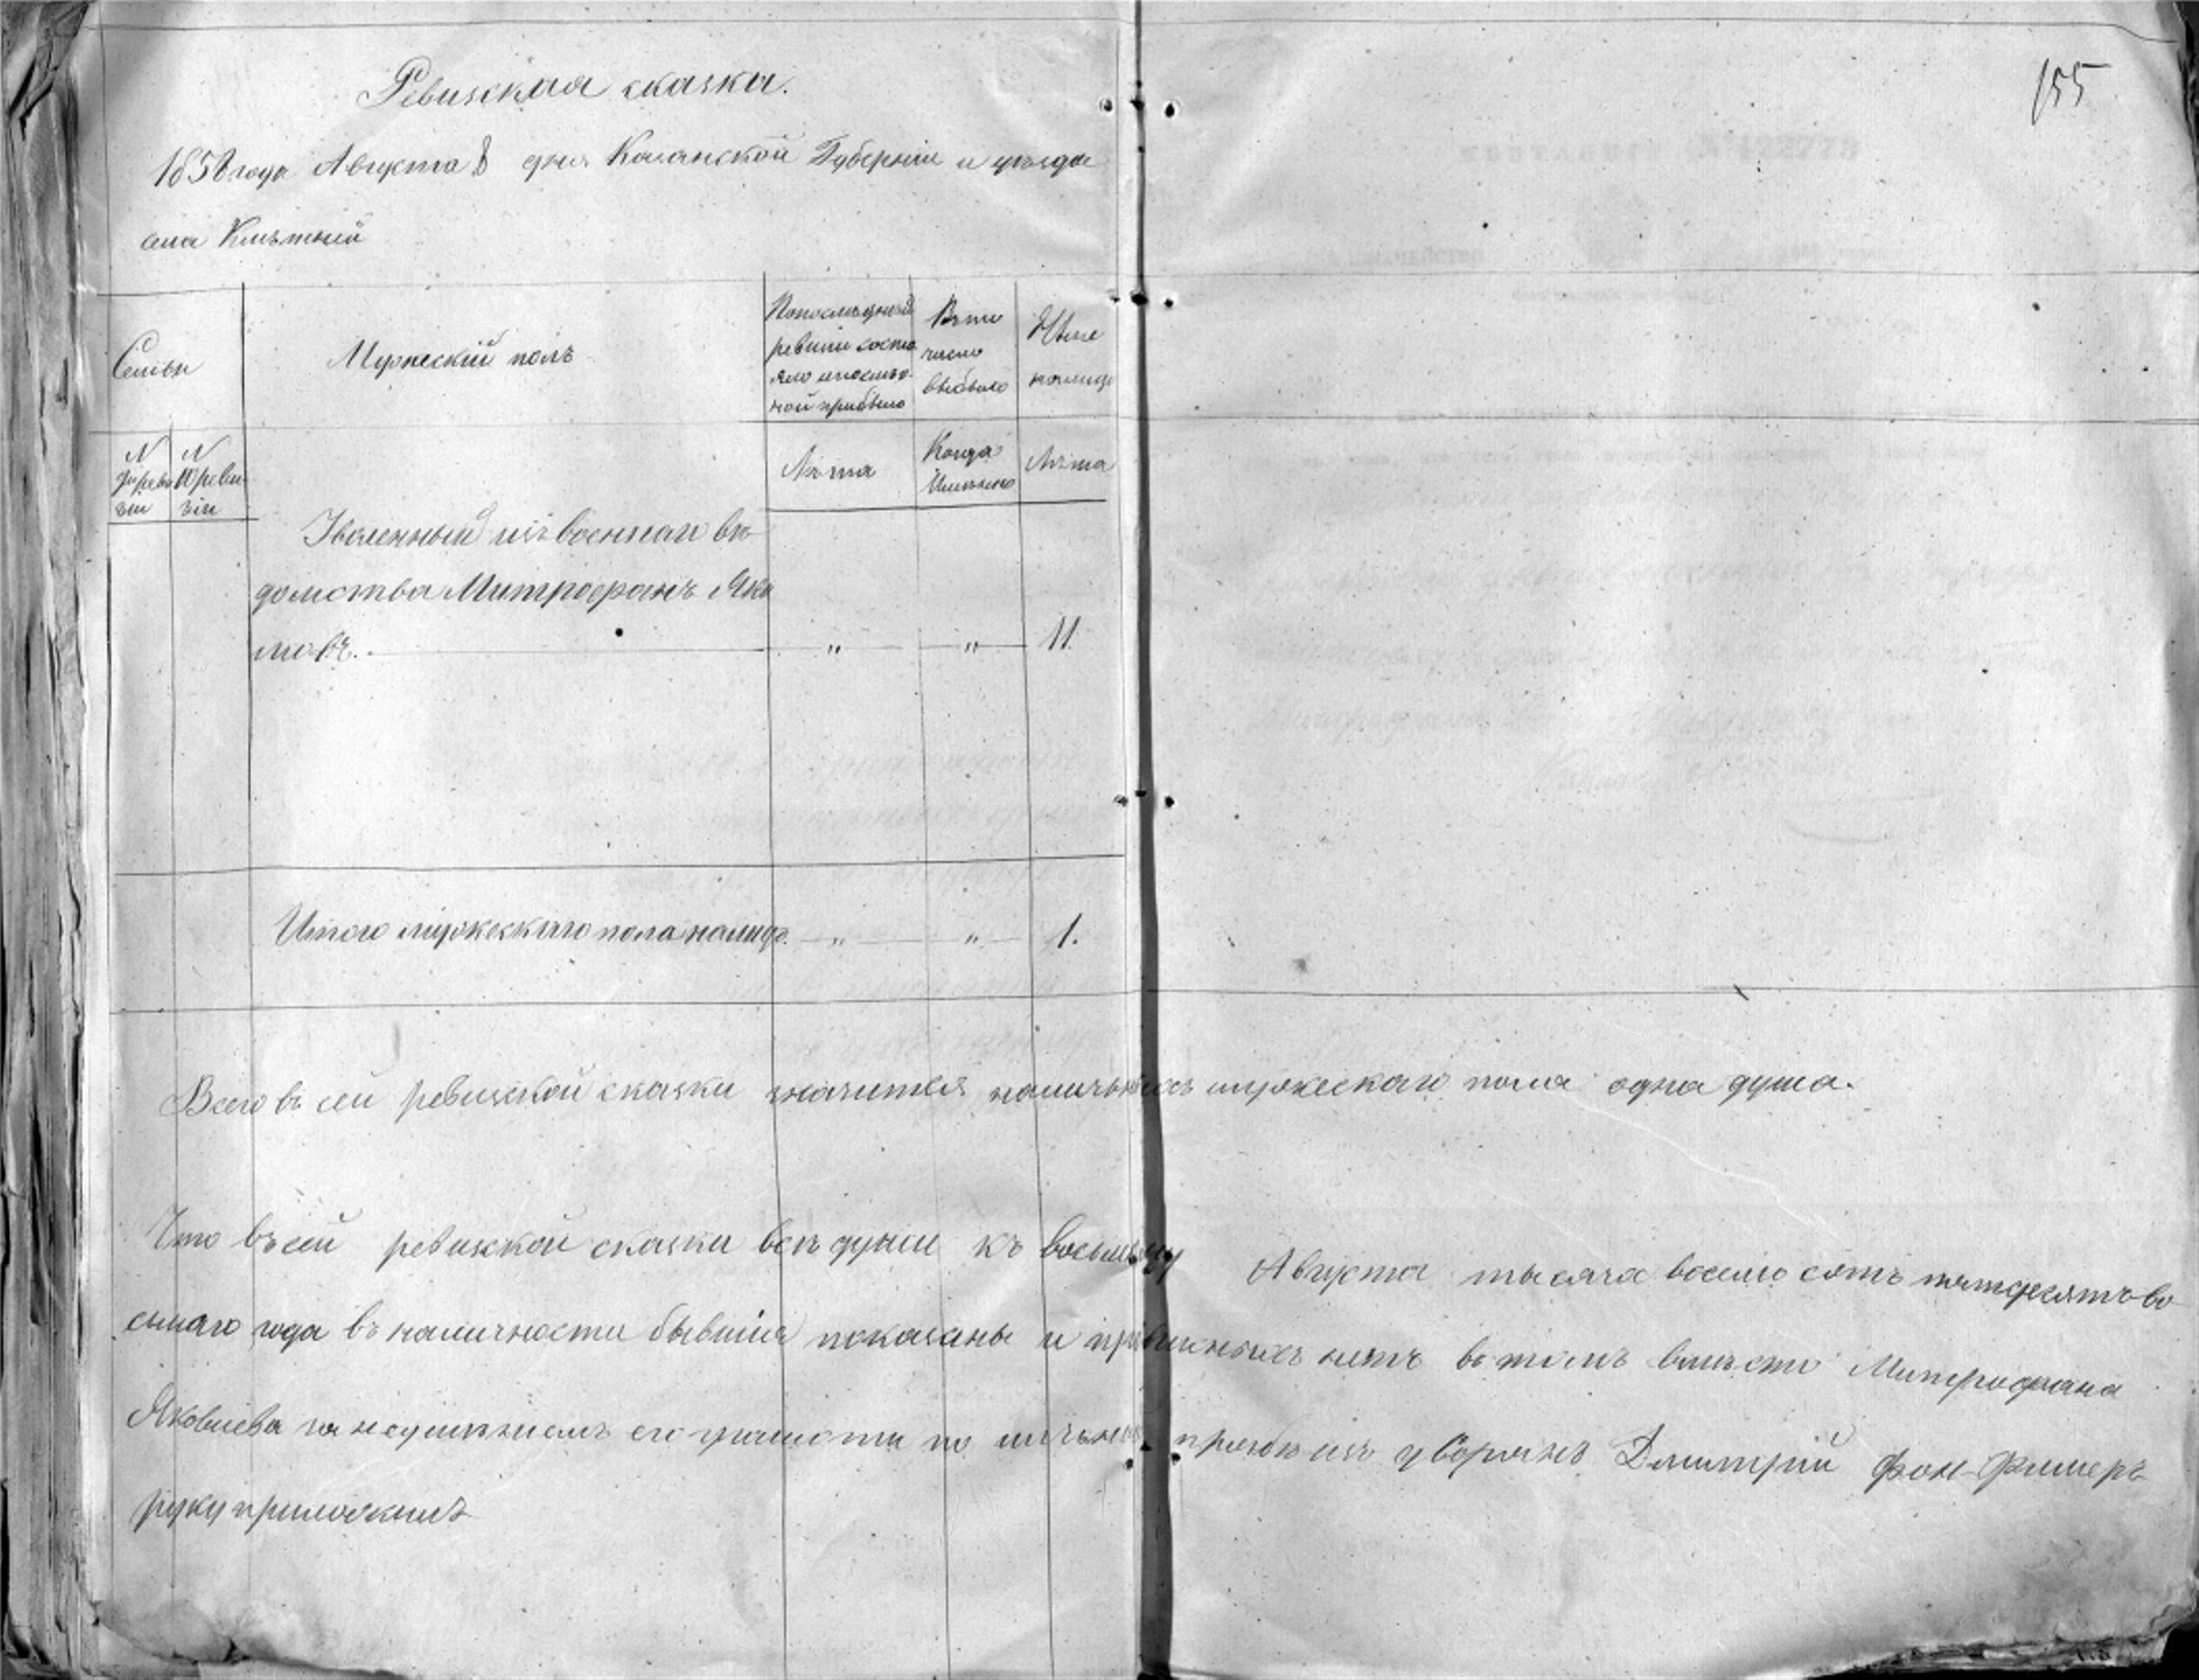 155
Ревизская сказка.
1858 года Августа 8 дня Казанской Губерніи и уѣзда
села
Семьи
Мужескій полъ
По послѣдней
ревизіи состо
яло и после о-
ной прибыло
Изъ того
числа
выбыло
Ныне
налицо
N
реви
зіи
N
10 реви
зіи
Лѣта
Когда
Имянно
Лѣта
Уволенный изъ военнаго вѣ
домства Митрофанъ Яко
влевъ. " " 11.
Итого мужескаго пола налицо. " " 1.
Всего въ сей ревизской сказки значится наличныхъ мужескаго пола одна душа.
Что въ сей ревизской сказки всѣ души къ восьмому Августа тысяча восемь сотъ пятдесятъ во
сьмаго года въ наличности бывшія показаны и нетъ въ томъ вместо Митрофана
Яковлева за неумѣніемъ его грамоты по личной прозбѣ изъ дворянъ Дмитрій фон-Фишеръ
руку приложилъ